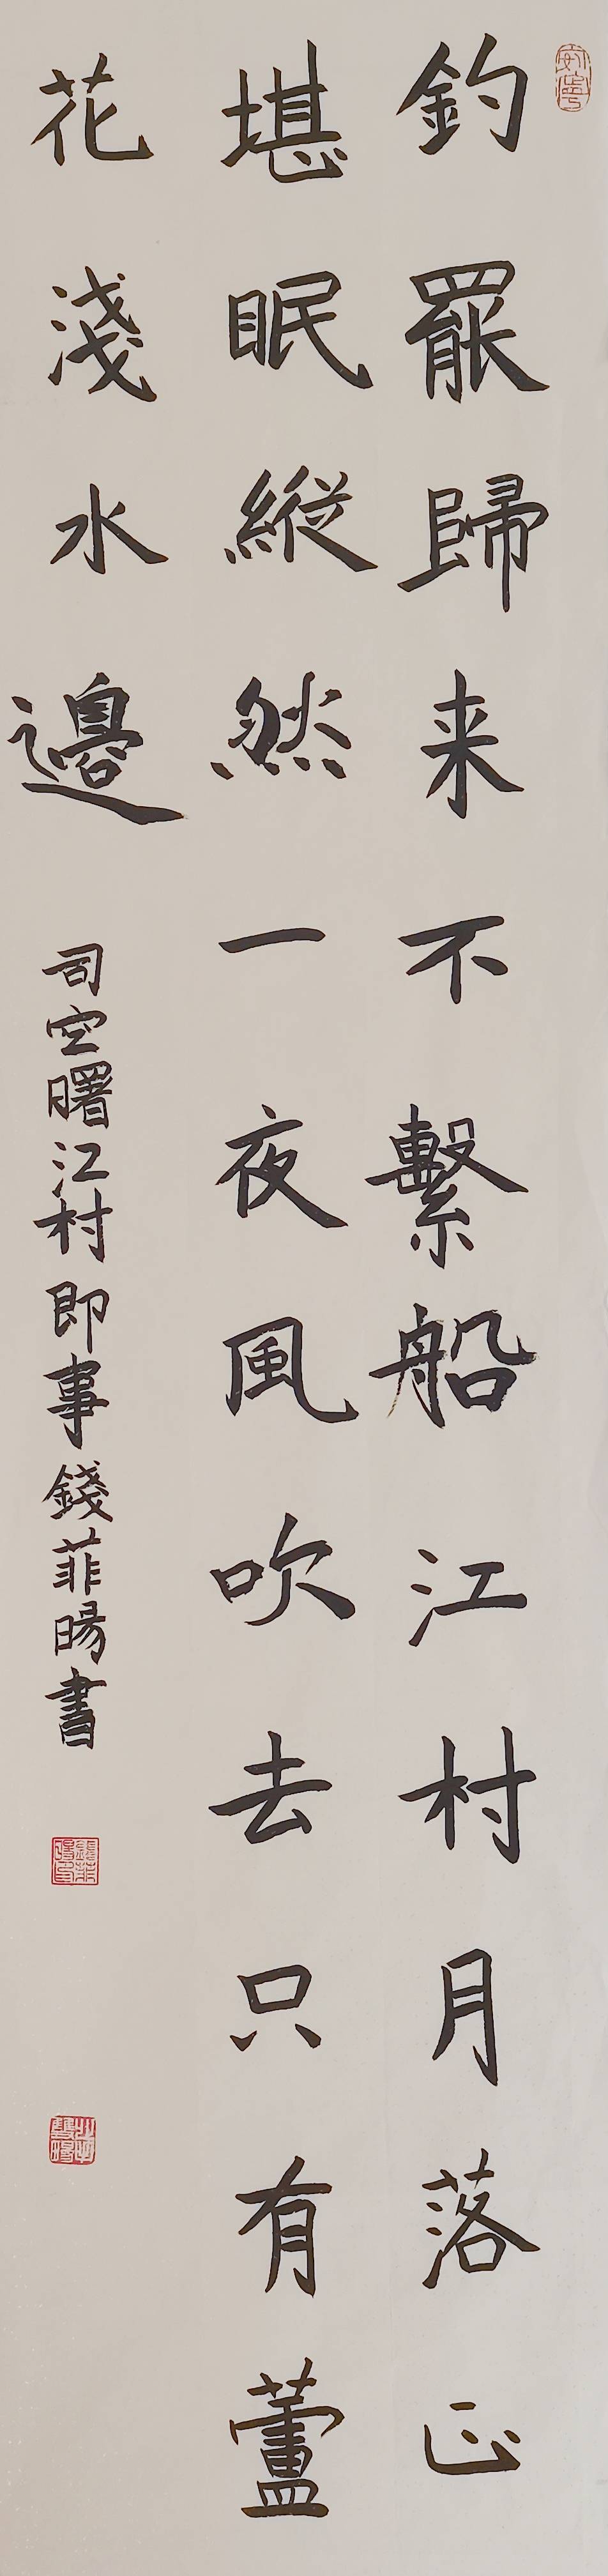 釣罷歸来不繫船江村月落正
堪眠縱然一夜風吹去只有蘆
花淺水邊
司空曙江村即事錢菲暘書